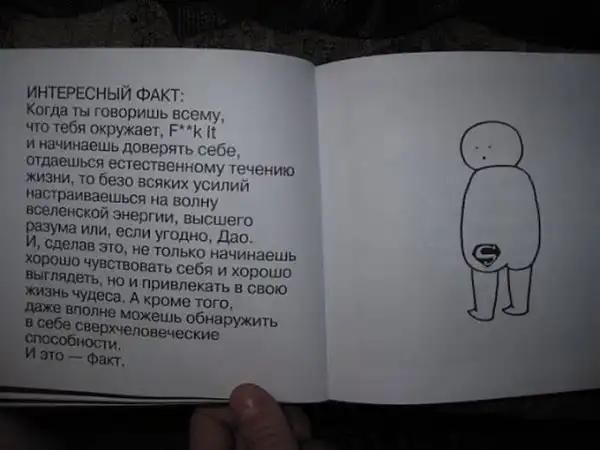 ИНТЕРЕСНЫЙ ФАКТ:
Когда ты говоришь всему,
что тебя окружает, F**k It
и начинаешь доверять себе,
отдаешься естественному течению
жизни, то безо всяких усилий
настраиваешься на волну
вселенской энергии, высшего
разума или, если угодно, Дао.
И, сделав это, не только начинаешь
хорошо чувствовать себя и хорошо
выглядеть, но и привлекать в свою
жизнь чудеса. А кроме того,
даже вполне можешь обнаружить
в себе сверхчеловеческие
способности.
И это — факт.
S